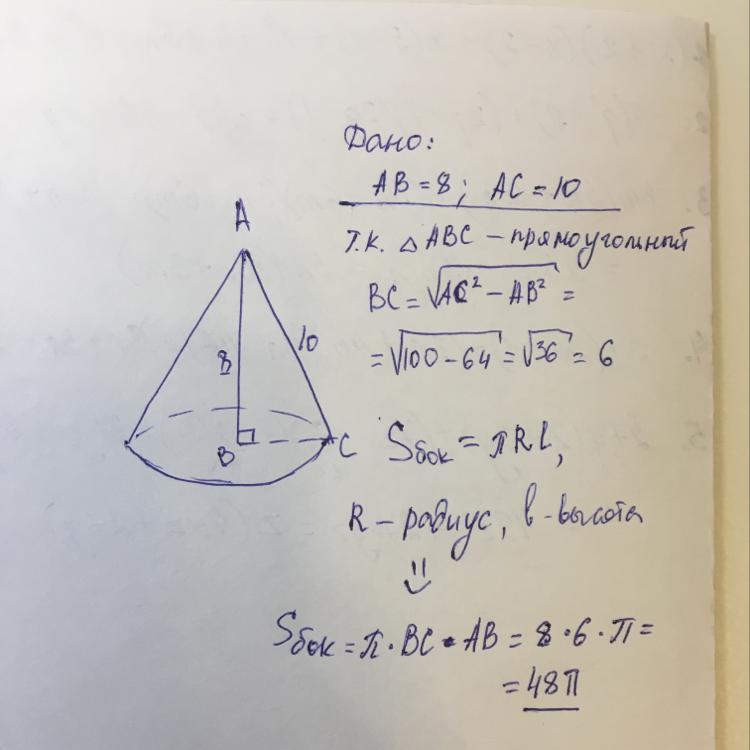 Дано:
AB = 8; AC = 10
A
т.к. △ ABC – прямоугольный
BC = √AC² – AB² =
= √100 – 64 = √36 = 6
10
8
B
C
Sбок = πRl,
R – радиус, l – высота
Sбок = π · BC · AB = 8 · 6 · π =
= 48π